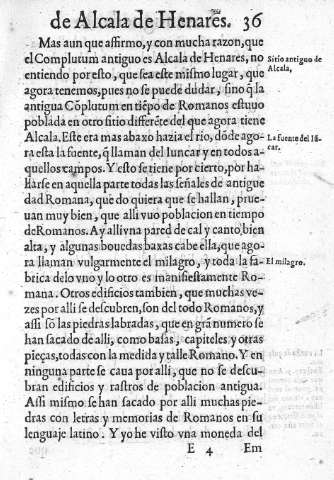 de Alcala de Henares. 36
Mas aun que affirmo, y con mucha razon, que
el Complutum antiguo es Alcala de Henares, no
entiendo por esto, que sea este mismo lugar, que
agora tenemos, pues no se puede dudar, sino q̃ la
antigua Cõplutum en tiẽpo de Romanos estuuo
poblada en otro sitio differẽte del que agora tiene
Alcala. Este era mas abaxo hazia el rio, dõde ago-
ra esta la fuente, q̃ llaman del Iuncar y en todos a-
quellos campos. Y esto se tiene por cierto, por ha-
llarse en aquella parte todas las señales de antigue
dad Romana, que do quiera que se hallan, prue-
uan muy bien, que alli vuo poblacion en tiempo
de Romanos. Ay alli vna pared de cal y canto bien
alta, y algunas bouedas baxas cabe ella, que ago-
ra llaman vulgarmente el milagro, y toda la fa-
brica de lo vno y lo otro es manifiestamente Ro-
mana. Otros edificios tambien, que muchas ve-
zes por alli se descubren, son del todo Romanos, y
assi sõ las piedras labradas, que en grã numero se
han sacado de alli, como basas, capiteles y otras
pieças, todas con la medida y talle Romano. Y en
ninguna parte se caua por alli, que no se descu-
bran edificios y rastros de poblacion antigua.
Assi mismo se han sacado por alli muchas pie-
dras con letras y memorias de Romanos en su
lenguaje latino. Y yo he visto vna moneda del
E 4 Em
Sitio antiguo de
Alcala,
La fuente del Iũ-
car.
El milagro.